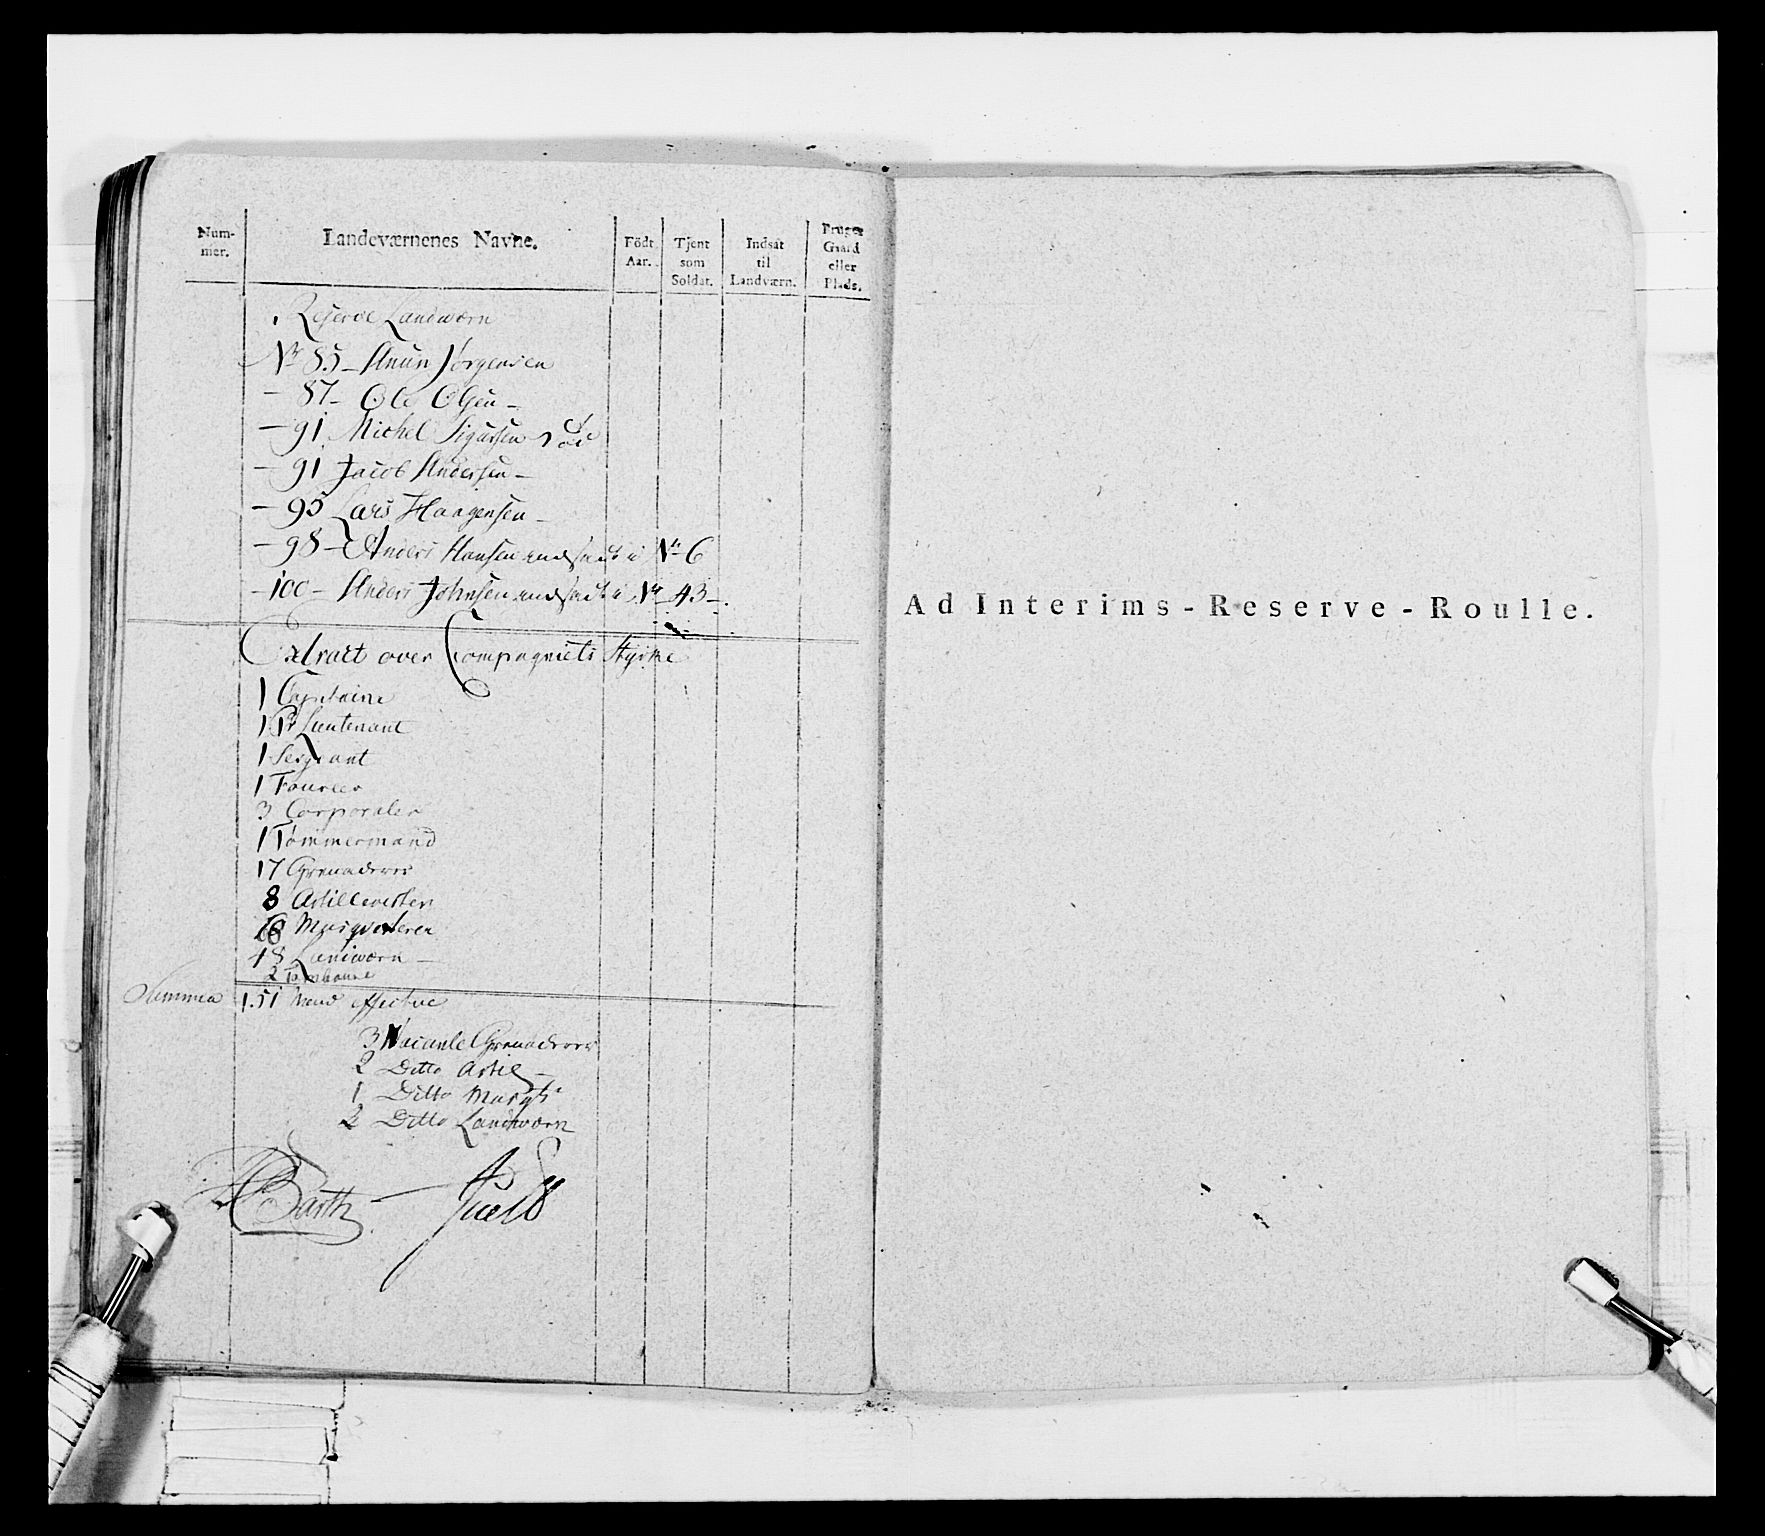 Num-
mer.
Landeværnenes Navne.
Födt
Aar.
Tjent
som
Soldat.
Indsat
til
Landværn.
Bruger
Gaard
eller
Plads.
Reserve Landworn
Nr 85 - Anun Jörgensen
- 87 - Ole Olsen -
- 91 Michel Sigursen död
- 91 Jacob Andersen -
- 95 Lars Haagensen -
- 98 - Anders Hansen indsadt i Nr 6
- 100 - Anders Johnsen indsadt i Nr 43 -
Extract over Compagniets Styrke
1 Capitaine
1 Pr Lieutenant
1 Sergeant
1 Foureer
3 Corporaler
1 Tömmermand
17 Grenaderer
8 Artillerister
Musqveterer
48 Landworn -
2 Tambourer
Summa 151 Mand effective
3 Vacante Grenaderer
2 Ditto Artil -
1 Ditto Musqtr
2 Ditto Landworn
Barth - Juell
Ad Interims-Reserve-Roulle.